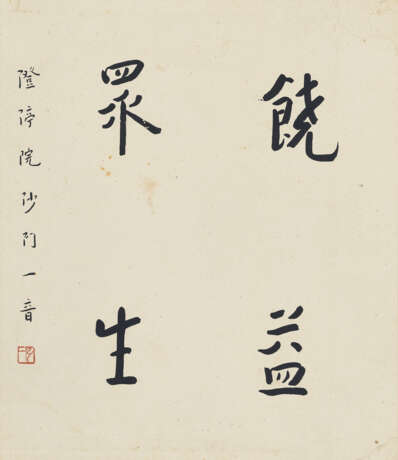 饒益
眾生
澄渟院沙門一音